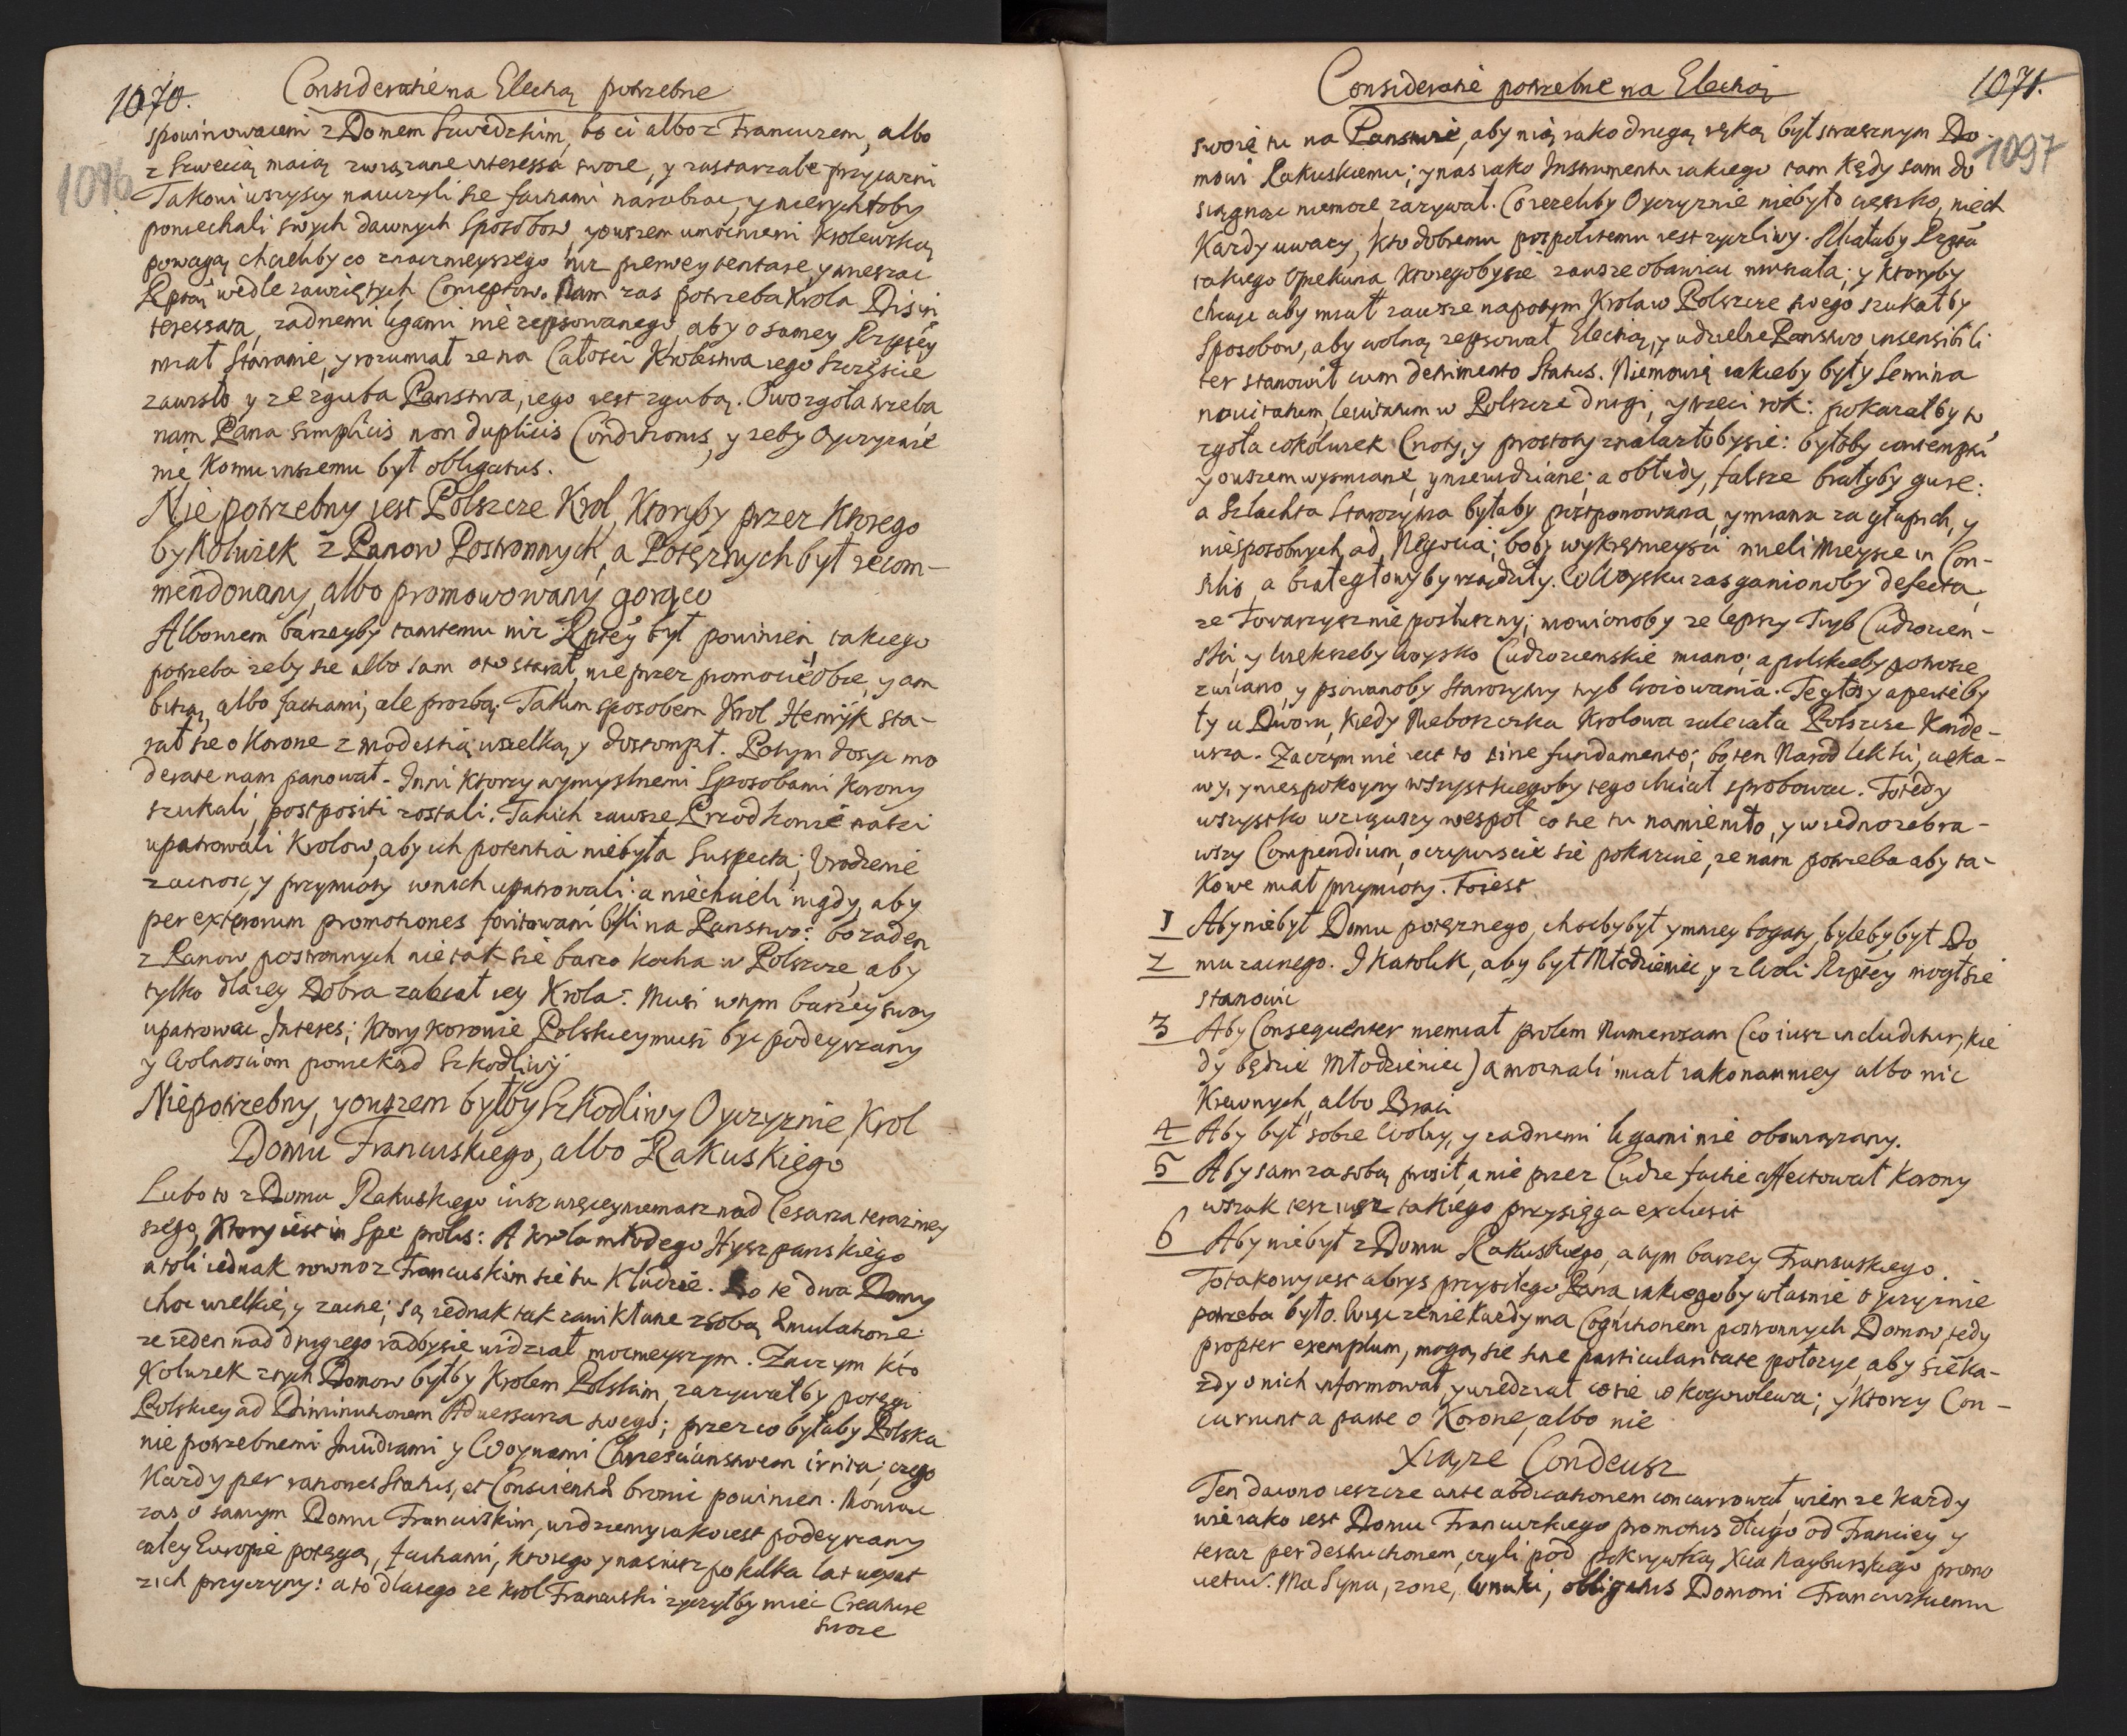 1070. Consideratie na Elekcią potrzebne
1096
spowinowaceni z Domem Szwedzkim, bo ci albo z Francuzem, albo
z Szwecią maią związane interessa swoie, y zastarzałe przyiazni
Takowi wszyscy nauczyli się factiami narabiac, y nie
poniechali swych dawnych sposobow, y owszem umocnieni Krolewską
powagą chcieliby co znacznieyszego niz pierwey tentare, y mieszac
Rptą wedle zawziętych Conceptow. Nam zas potrzeba Krola Disin
teressata, zadnemi ligami nie zepsowanego, aby o samey Rzptey
miał staranie, y rozumiał ze na Całosci Krolestwa iego szczęscie
zawisło y ze zguba Panstwa, iego iest zgubą. Owo zgoła trzeba
nam Pana simplicis non duplicis Conditionis, y zeby Oyczyznie
nie komu inszemu był obligatus.
Nie potrzebny iest Polszcze Krol, Ktoryby przez Ktorego
bykolwiek z Panow Postronnych, a Potęznych był recom-
mendowany, albo promowowany gorąco
Albowiem barzeyby tamtemu niz Rptey był powinien, takiego
potrzeba zeby się albo sam o to starał, nie przez promocie obce, y am
bitią, albo factiami, ale prozbą. Takim sposobem Krol Henryk sta-
rał sie o Korone z modestią wszelką, y dostompił. Potym dosyc mo
derate nam panował. Inni Ktorzy wymyslnemi sposobami Korony
szukali, postpositi zostali. Takich zawsze Przodkowie nasi
upatrowali Krolow, aby ich potentia niebyła suspecta; Urodzenie
zacnosc, y przymioty w nich upatrowali: a niechcieli nigdy, aby
per exterorum promotiones foritowani byli na Panstwo: bo zaden
z Panow postronnych nie tak się barzo kocha w Polszcze, aby
tylko dla iey Dobra zalecał iey Krola: Musi w tym barzey swoy
upatrowac Interes; Ktory koronie Polskiey musi byc podeyrzany
y Wolnosciom poniekąd szkodliwy
Niepotrzebny, y owszem byłby szkodliwy Oyczyznie Krol
Domu Francuskiego, albo Rakuskiego
Lubo to z Domu Rakuskiego iusz więcey niemasz nad Cesarza terazniey
szego, Ktory iest in spe prolis: A Krola młodego Hyszpanskiego
atoli iednak rowno z Francuskim sie tu kładzie. Bo te dwa Domy
choc wielkie, y zacne; są iednak tak zawikłane z sobą Emulatione
ze ieden nad drugiego radbysie widział mocnieyszym. Zaczym kto
Kolwiek z tych Domow byłby Krolem Polskim, zazywałby potęgi
Polskiey ad Diminutionem Adversarza swego; przez co byłaby Polska
nie potrzebnemi Inwidiami y Woynami Chrzescianstwem irrita; czego
Kazdy per rationes Status, et Conscientiae bronic powinien. Mowiąc
zas o samym Domu Francuskim, widziemy iako iest podeyrzany
całey Europie potęgą, factiami, ktorego y nasz iusz po kilka lat
z ich przyczyny: a to dlatego ze krol Francuski zyczyłby miec Creature
swoie
Consideratie potrzebne na Elekcią 1071.
1097
swoię tu na Panstwie, aby nią iako drugą ręką był strasznym Do-
mowi Rakuskiemu; y nas iako Instrumentu iakiego tam kędy sam do
siągnąc niemoze zazywał. Co iezeliby Oyczyznie niebyło ciężko, niech
Kazdy uwazy, kto dobremu pospolitemu iest zyczliwy. Miałaby Rzpta
takiego Opiekuna, ktoregobysie zawsze obawiac musiała; y ktoryby
chcąc aby miał zawsze napotym Krola w Polszcze swego szukałby
Sposobow, aby wolną zepsował Elekcią, y udzielne Panstwo insensibili
ter stanowił cum detrimento Status. Niemowię iakieby były semina
novitatum, levitatum w Polszcze drugi, y trzeci rok: pokazałby to
zgoła cokolwiek Cnoty, y prostoty znalazłobysie: byłoby contempti
y owszem wysmiane, y niewidziane; a obłudy, falsze brałyby gure:
a Szlachta Starozytna byłaby postponowana, y miana za głupich, y
niesposobnych ad Negocia; boby wykrętnieysi mieli mieysce in Con-
silio, a białegłowy by rządziły. W Woysku zas ganionoby defecta,
ze Towarzysz nie posłuszny; mowionoby ze lepszy Tryb Cudzoziem-
ski, y większeby woysko Cudzoziemskie miano; a polskieby potrosze
zwiiano, y psowanoby Starozytny tryb woiowania. Te głosy aperte by
ły u Dworu, kiedy Nieboszczka Krolowa zalecała Polszcze Kande-
usza. Zaczym nie iest to sine fundamento; bo ten Narod lekki, cieka-
wy, y niespokoyny wszystkiegoby tego chciał sprobowac. To tedy
wszystko wziąwszy wespoł co sie tu namieniło, y w iedno zebra-
wszy Compendium, oczywiscie sie pokazuie, ze nam potrzeba aby ta-
kowe miał przymioty. To iest
1 Aby niebył Domu potęznego, chocby był y mniey bogaty, byleby był Do
2 mu zacnego. I Katolik, aby był Młodzieniec, y z Woli Rzptey mogł sie
stanowic
3 Aby Consequenter niemiał prolem Numerosam (co iusz includitur, kie
dy będzie Młodzieniec) a moznali miał iakonamniey albo nic
Krewnych, albo Braci
4 Aby był sobie Wolny, y zadnemi ligami nie obowiązany.
5 Aby sam za sobą prosił, a nie przez Cudze factie affectował Korony
wszak tesz iusz takiego przysięga exclusit
6 Aby niebył z Domu Rakuskiego, a tym barzey Francuskiego.
To takowy iest abrys przyszłego Pana, iakiegoby własnie Oyczyznie
potrzeba było. Więc ze nie kazdy ma Cognitionem postronnych Domow, tedy
propter exemplum, mogą sie sine particularitate połozyc, aby sie ka-
zdy o nich informował, y wiedział co sie w kogo wlewa; y ktorzy Con-
currunt a parte o Koronę, albo nie
Xiąze Condeusz
Ten dawno ieszcze ante abdicationem concurrował, wiem ze kazdy
wie iako iest Domu Francuzkiego promotus długo od Franciey y
teraz per destructionem, czyli pod pokrywką Xcia Nayburskiego promo
vetur. Ma Syna, zone, wnuki, obligatus Domowi Francuzkiemu